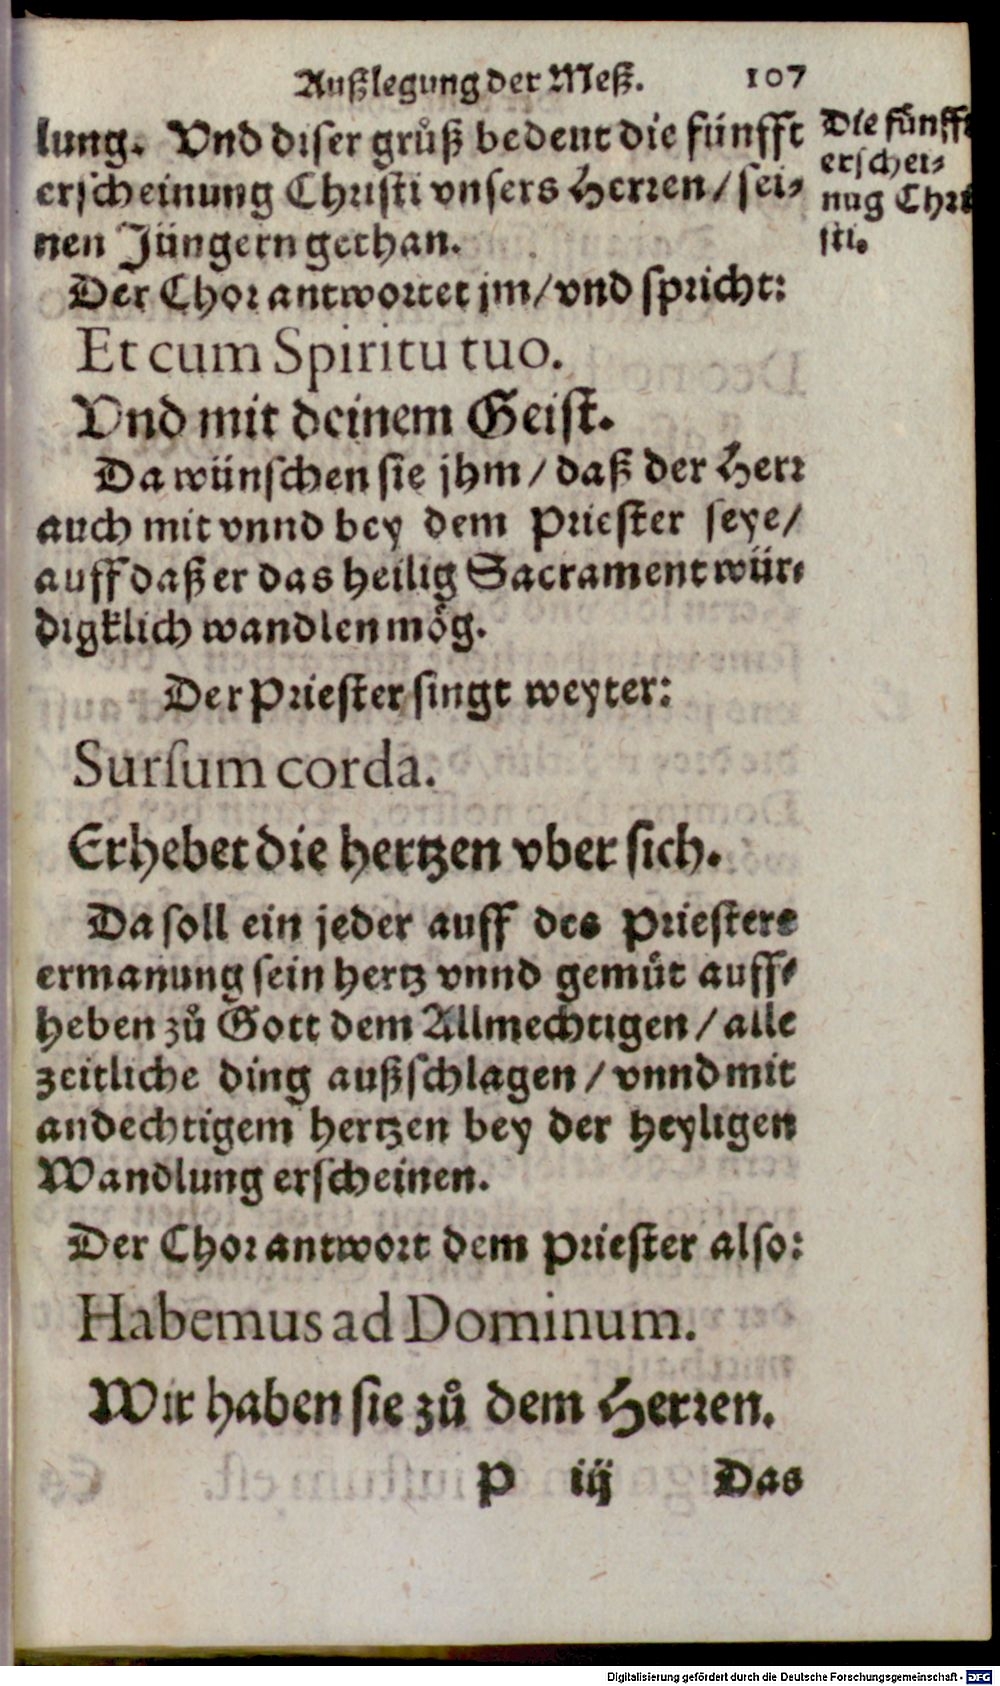 Außlegung der Meß. 107
lung. Vnd diser grůß bedeut die fünfft
erscheinung Christi vnsers Herren / sei-
nen Jüngern gethan.
Die fünfft
erschei-
nug Chri
sti.
Der Chor antwortet jm / vnd spricht:
Et cum Spiritu tuo.
Vnd mit deinem Geist.
Da wünschen sie jhm / daß der Herr
auch mit vnnd bey dem Priester seye /
auff daß er das heilig Sacrament wür-
digklich wandlen mög.
Der Priester singt weyter:
Sursum corda.
Erhebet die hertzen vber sich.
Da soll ein jeder auff des Priesters
ermanung sein hertz vnnd gemüt auff-
heben zů Gott dem Allmechtigen / alle
zeitliche ding außschlagen / vnnd mit
andechtigem hertzen bey der heyligen
Wandlung erscheinen.
Der Chor antwort dem Priester also:
Habemus ad Dominum.
Wir haben sie zů dem Herren.
P iij Das
Digitalisierung gefördert durch die Deutsche Forschungsgemeinschaft - DFG